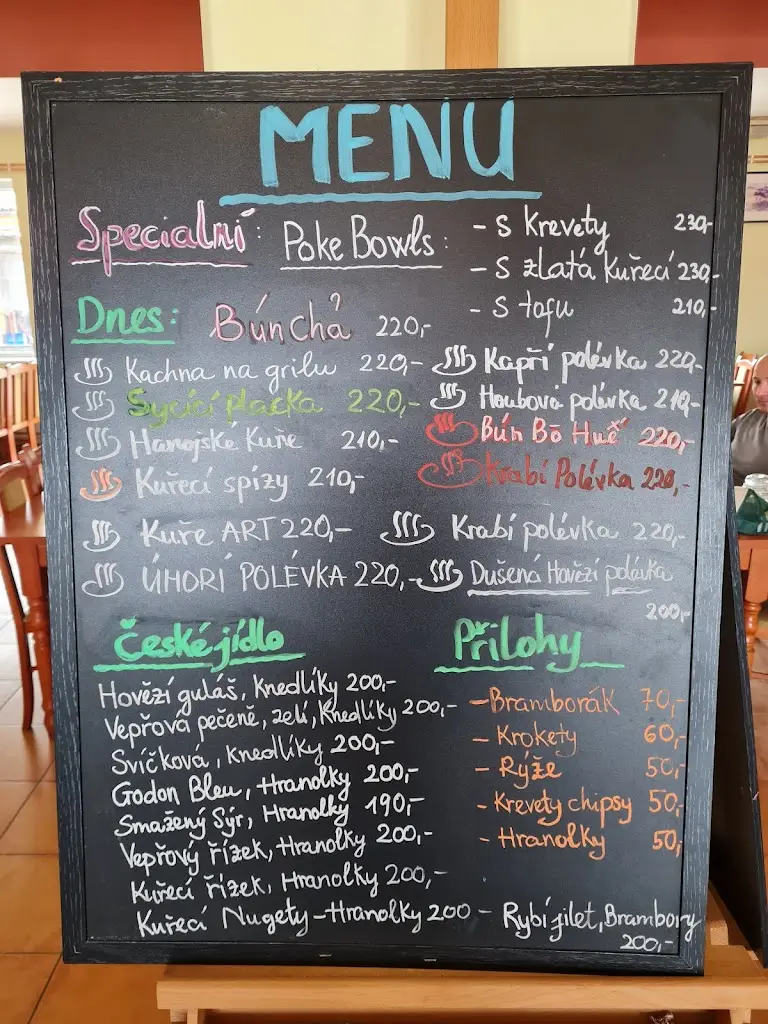 MENU
Specialní: Poke Bowls: - S Krevety 230,-
- S zlatá Kuřecí 230,-
- S tofu 210,-
Dnes: Bún Chả 220,-
Kachna na grilu 220,-
Kapří polévka 220,-
Sycící placka 220,-
Houbová polévka 210,-
Hanojské Kuře 210,-
Bún Bò Huế 220,-
Kuřecí spízy 210,-
Krabí Polévka 220,-
Kuře ART 220,-
Krabí polévka 220,-
ÚHORÍ POLÉVKA 220,-
Dušená Hovězí polévka
200,-
České jídlo
Hovězí guláš, Knedlíky 200,-
Vepřová pečeně, zelí, Knedlíky 200,-
Svíčková, Knedlíky 200,-
Godon Bleu, Hranolky 200,-
Smažený Sýr, Hranolky 190,-
Vepřový řízek, Hranolky 200,-
Kuřecí řízek, Hranolky 200,-
Kuřecí Nugety - Hranolky 200
Přílohy
- Bramborák 70,-
- Krokety 60,-
- Rýže 50,-
- Krevety chipsy 50,-
- Hranolky 50,-
- Rybí filet, Brambory
200,-